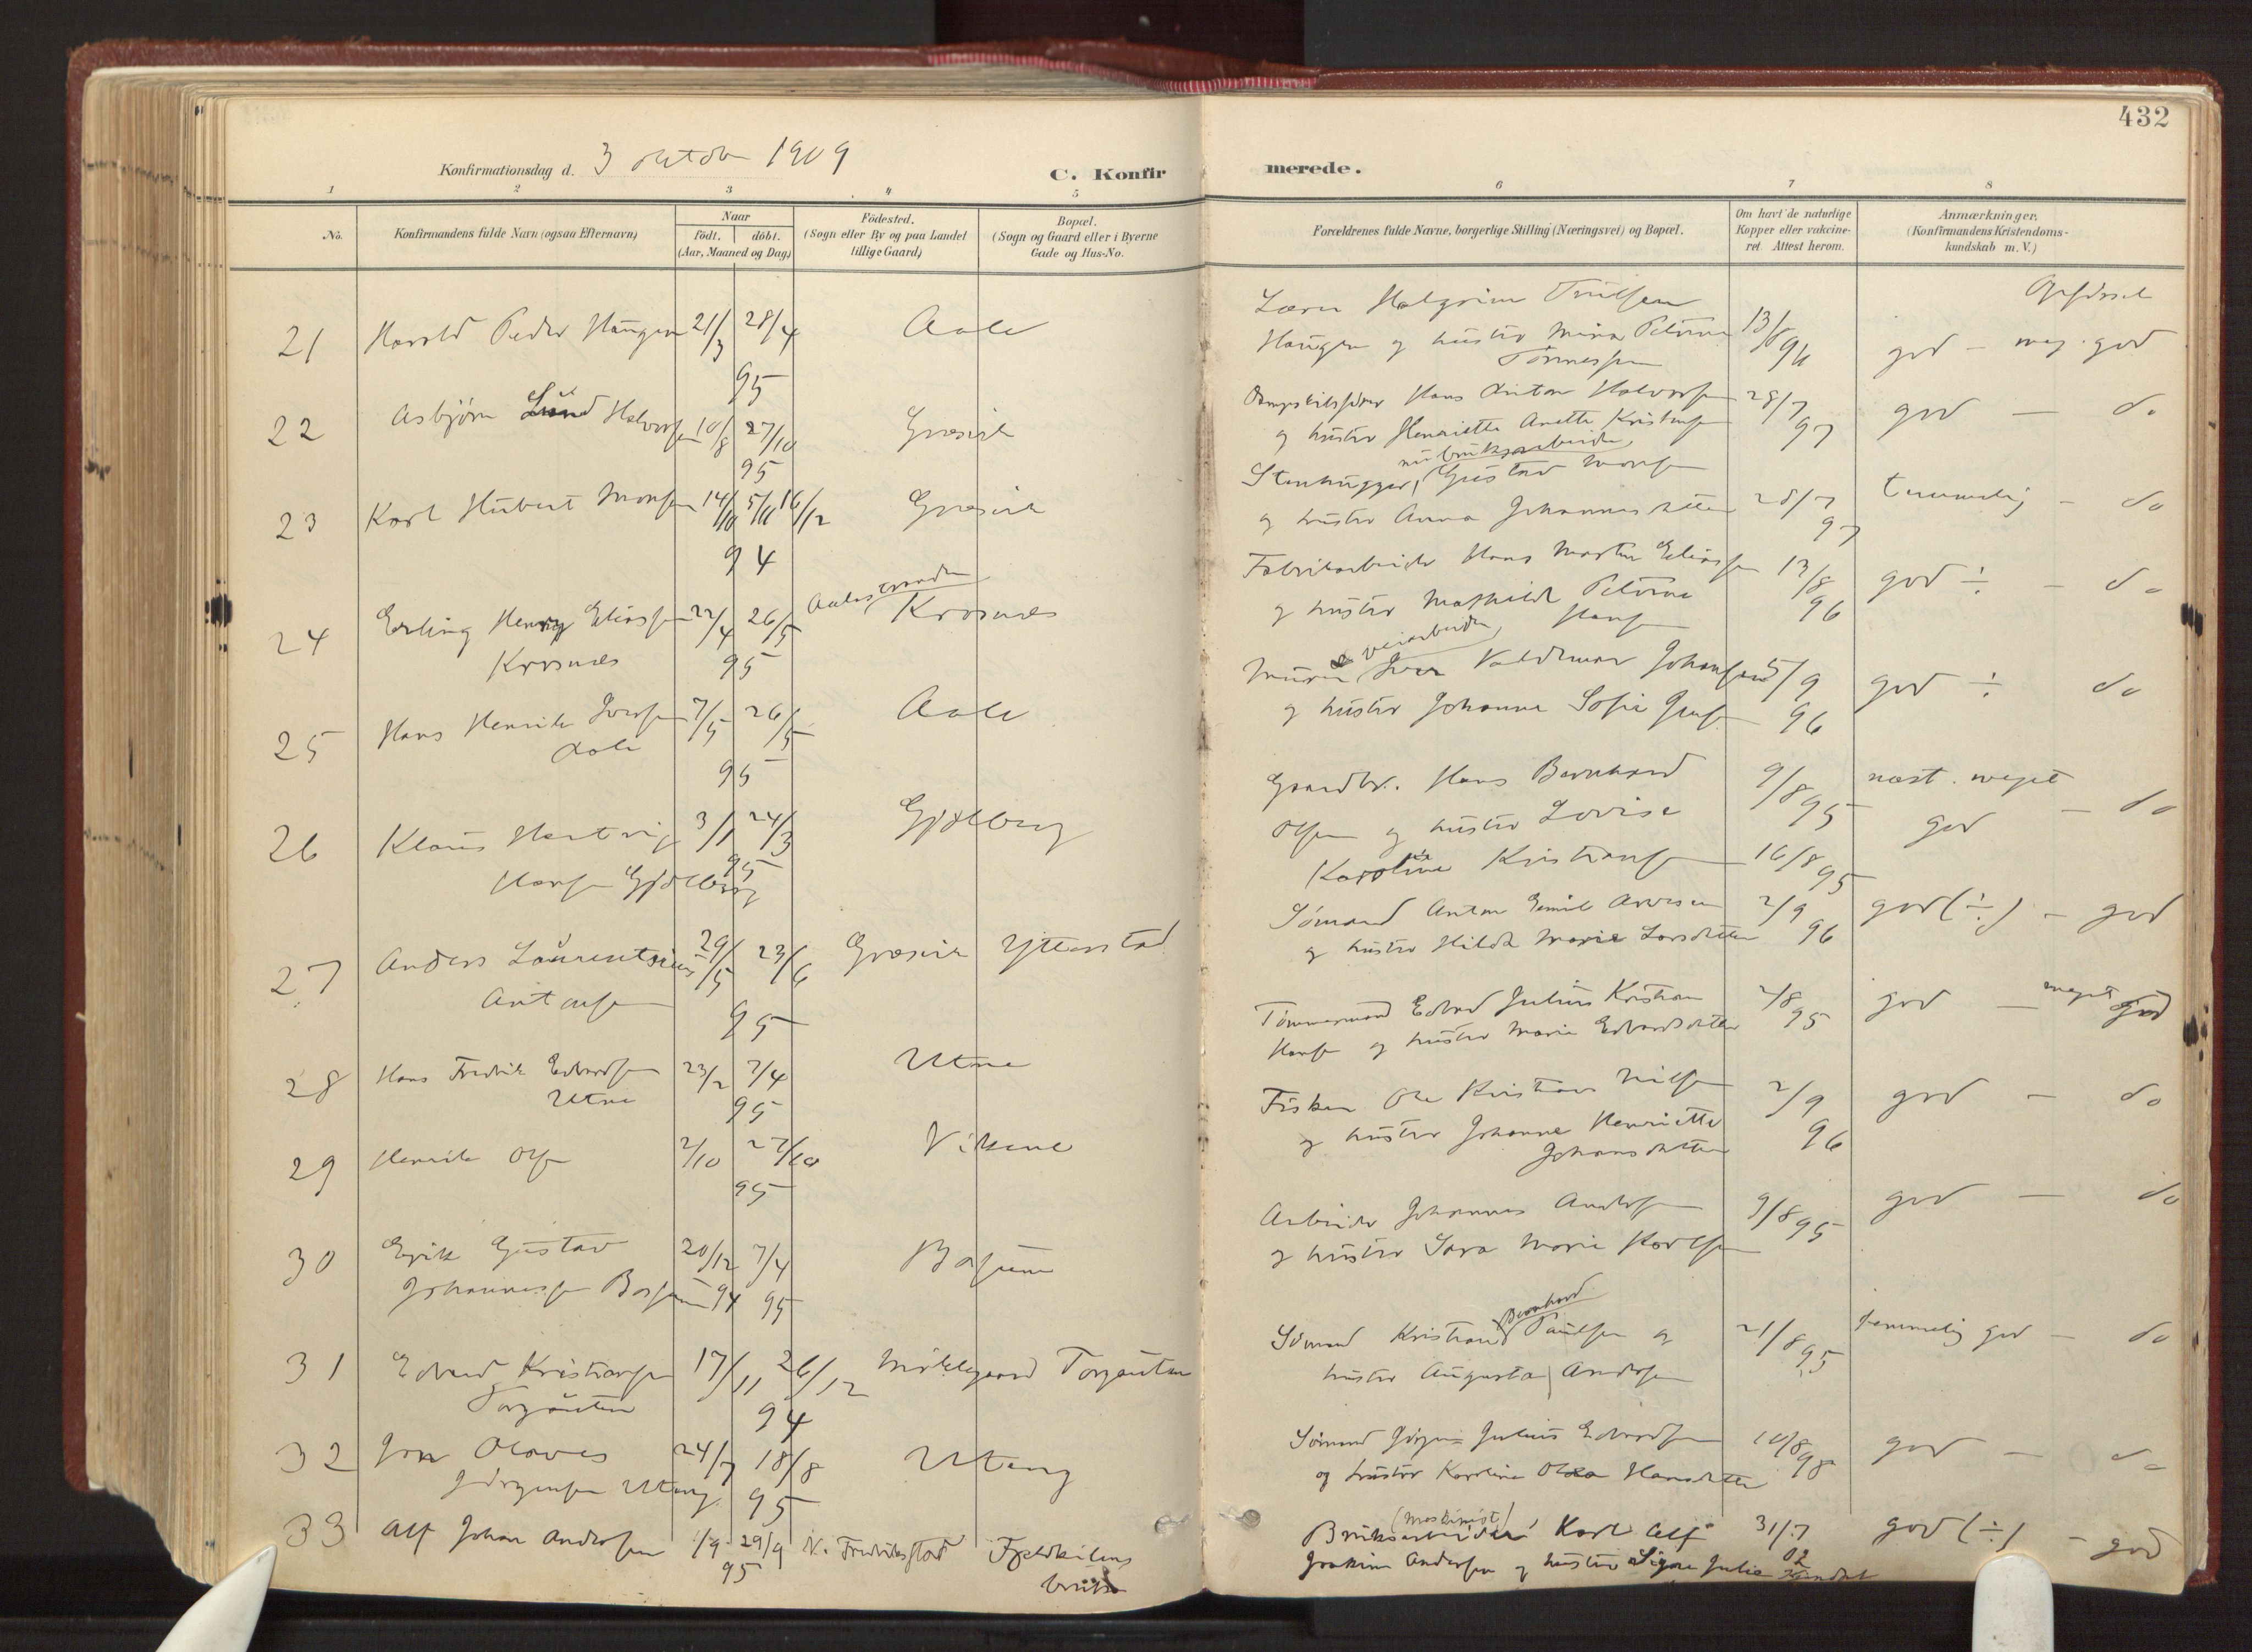 432
Konfirmationsdag d. 3 oktober 1909
C. Konfirmerede.
1 2 3 4 5 6 7 8
No.
Konfirmandens fulde Navn (ogsaa Efternavn)
Naar
födt. döbt.
(Aar, Maaned og Dag)
Födested.
(Sogn eller By og paa Landet
tillige Gaard)
Bopæl.
(Sogn og Gaard eller i Byerne
Gade og Hus-No.
Forældrenes fulde Navne, borgerlige Stilling (Næringsvei) og Bopæl.
Om havt de naturlige
Kopper eller vakcine-
ret. Attest herom.
Anmærkninger.
(Konfirmandens Kristendoms-
kundskab m. V.)
Opførsel
21 Harald Peder Haugen 21/3 28/4 95 Aale
Lærer Halgrim Truilsen
Haugen og hustru Mina Petrine
Tønnessen
13/8 96 god – meg. god
22 Asbjørn Lund Halvorsen 10/8 27/10 95 Græsvik
Dampskibsfører Hans Anton Halvorsen
og hustru Henriette Anette Kristensen
28/7 97 god – do
23 Karl Hubert Monsen 14/10 16/12 94 Græsvik
nu bruksarbeider
Stenhugger, Gustav Monsen
og hustru Anna Johannesdatter
28/7 97 temmelig – do
24 Erling Henry Eliassen
Krosnes
22/4 26/5 95
Aalestranden
Krosnes
Fabrikarbeider Hans Martin Eliassen
og hustru Mathilde Petrine
Hansen
13/8 96 god ÷ – do
25 Hans Henrik Iversen
Aale
7/5 26/5 95 Aale
veiarbeider
Murer Iver Valdemar Johansen
og hustru Johanne Sofie
5/9 96 god ÷ do
26 Klaus Hartvig
Hansen Gjølberg
3/1 24/3 95 Gjølberg
Gaardbr. Hans Bernhard
Olsen og hustru Lovise
Karoline Kristiansen
9/8 95
16/8 95
næst. meget
god – do
27 Anders Laurentsius
Antonsen
29/5 23/6 95 Græsvik Ytterstad
Sømand Anton Emil Arvesen
og hustru Hilda Marie Larsdatter
2/9 96 god (÷) – god
28 Hans Fredrik Edvardsen
Utne
23/2 7/4 95 Utne
Tømmermand Edvard Julius Kristian
Hansen og hustru Marie Edvardsdatter
2/8 95 god – meget god
29 Henrik Olsen 2/10 27/10 95 Vikene
Fisker Ole Kristian Nilsen
og hustru Johanne Henriette
Johansdatter
2/9 96 god – do
30 Erik Gustav
Johannessen Bossum
20/12 94 7/4 95 Bossum
Arbeider Johannes Andersen
og hustru Sara Marie Karlsen
9/8 95 god – do
31 Edvard Kristiansen
Torgauten
17/11 26/12 94 Myklegaard Torgauten
Bernhard
Sømand Kristian Paulsen og
hustru Augusta Andersen
21/8 95 temmelig god – do
32 Jon Olaves
Jørgensen Uteng
24/7 18/8 95 Uteng
Sømand Jørgen Julius Edvardsen
og hustru Karoline Olea Hansdatter
10/8 98 god – do
33 Alf Johan Andersen 1/9 29/9 95 N. Fredriksstad Fjeldkilens
bruk
(maskinist)
Bruksarbeider Karl Alf
Joakim Andersen og hustru Signe Julie
31/7 02 god (÷) – god